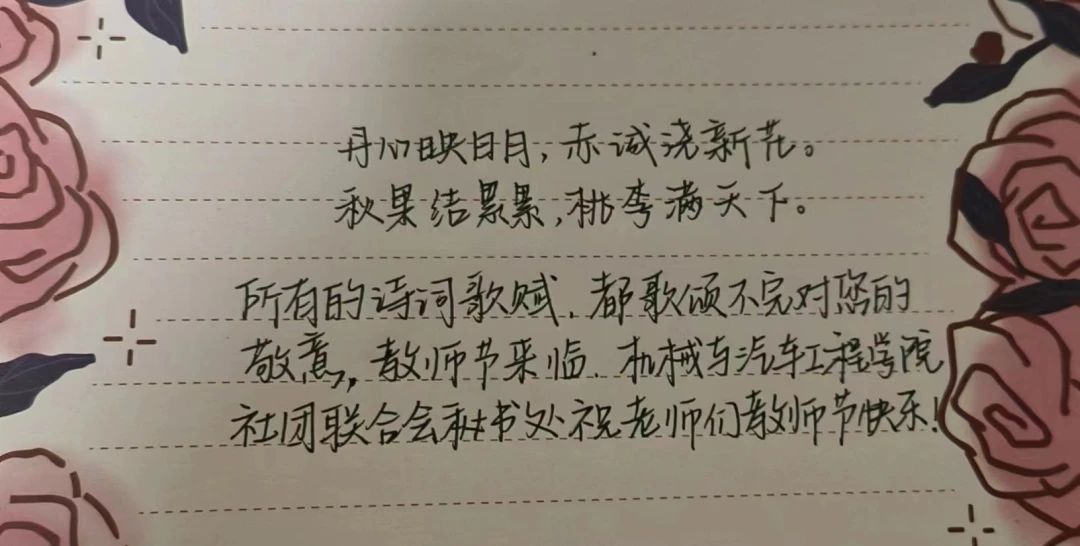 丹心映日月,赤诚浇新花。
秋果结累累,桃李满天下。
所有的诗词歌赋,都歌颂不完对您的
敬意,教师节来临.机械与汽车工程学院
社团联合会秘书处祝老师们教师节快乐!